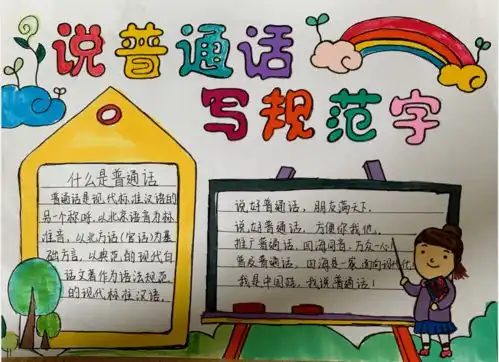 说普通话
写规范字
什么是普通话
普通话是现代标准汉语的
另一个称呼,以北京语音为标
准音,以北方话(官话)为基
础方言,以典范的现代白
话文著作为语法规范
的现代标准汉语.
说好普通话,朋友满天下.
说好普通话,方便你我他.
推广普通话,四海同音,万众一心
普及普通话,四海是一家,面向现代化
我是中国娃,我说普通话!